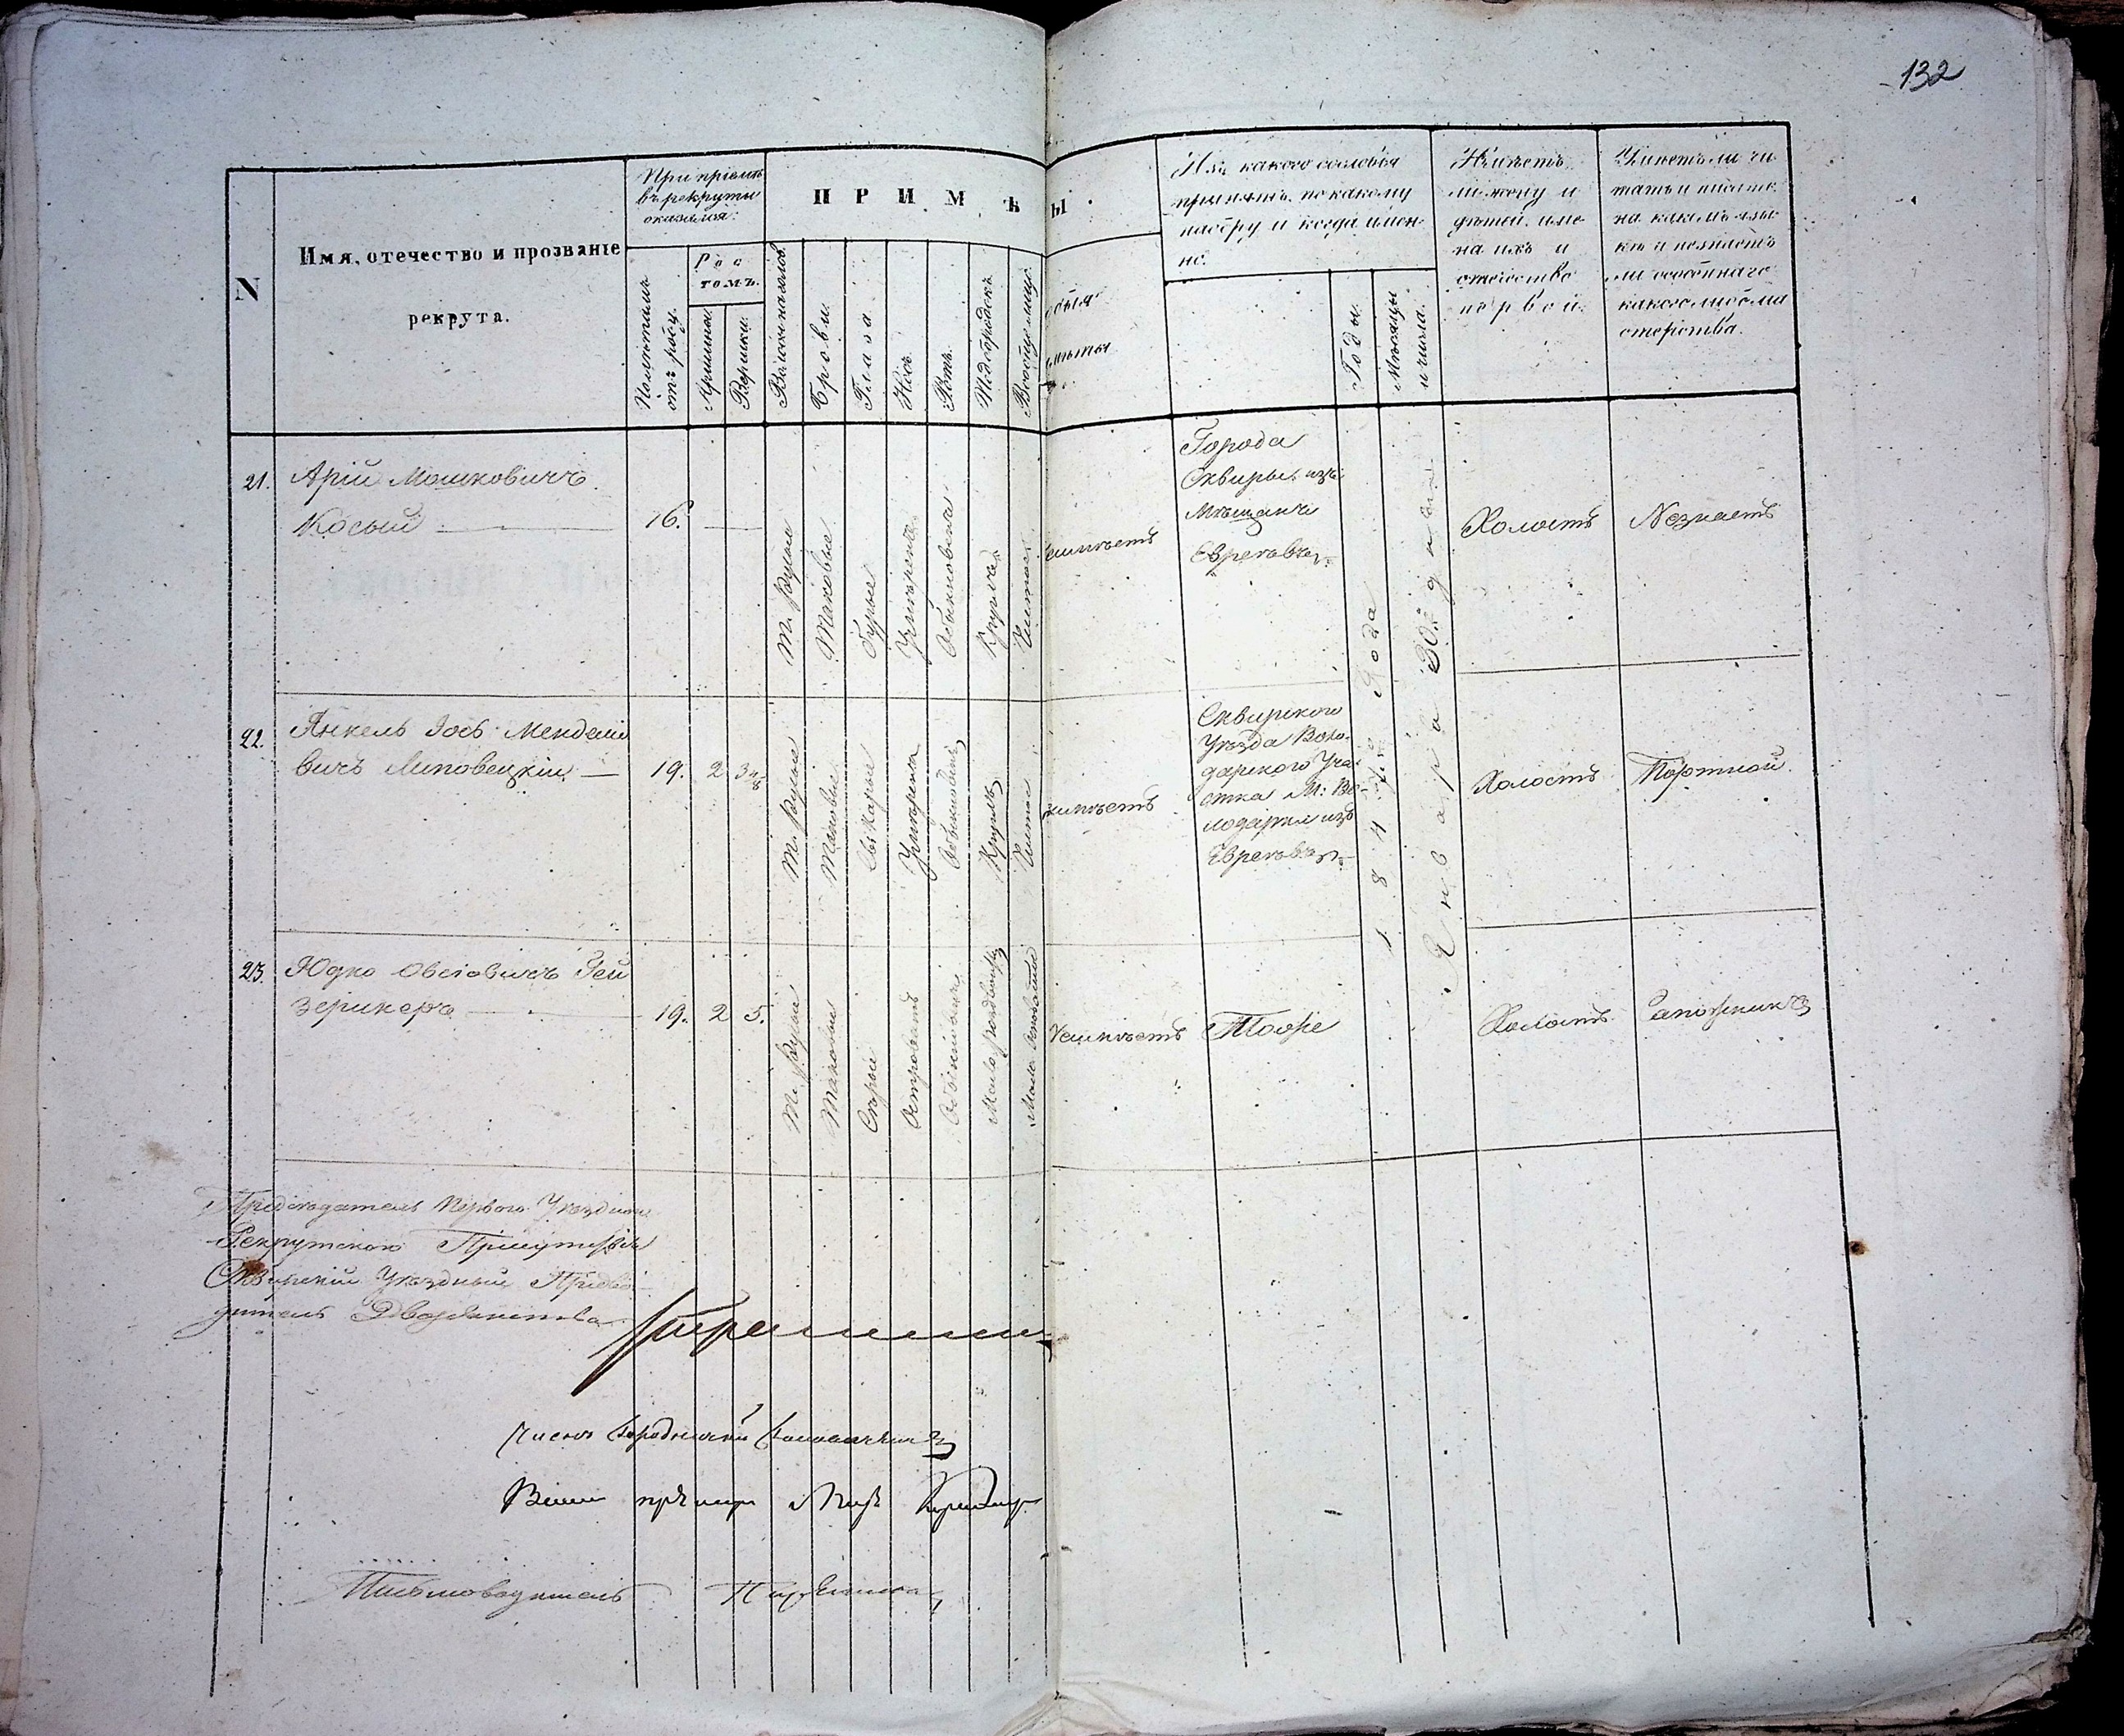 132
N
Имя, отечество и прозваніе
рекрута.
При пріемѣ
въ рекруты
оказался:
Полѣтамъ
отъ роду.
Рос
томъ.
Аршины.
Вершки.
ПРИМѢ
ы.
Волосы на головѣ
Брови.
Глаза
Носъ.
Ротъ.
Подбородокъ
Вообще лице
обыя
мѣты
Изъ какого сословія
принятъ, по какому
набору и когда имен-
но.
Годы.
Мѣсяцы
и числа.
Имѣетъ
ли жену и
дѣтей, име
на ихъ и
отечество
первой.
Умѣетъ ли чи
тать и писать
на какомъ язы
кѣ и незнаетъ
ли особеннаго
какого либо ма
стерства.
21.
Арій Мошковичъ
Косый
16.
Т. Русые
Таковые
Бурые
Умѣрена
Обыкновена
Круглъ
Чистое
Неимѣетъ
Города
Сквиры, изъ
Мѣщанъ
Евреевъ
1847го Года
Января 30го дня
Холостъ
Незнаетъ
22.
Янкель Іось Мендели
вичъ Липовецкій
19. 2 3 4/8
Т. Русые
Таковые
Свѣ Карые
Умѣрена
Обыкновенъ
Круглъ
Чистое
неимѣетъ
Сквирского
Уѣзда Воло-
дарского Уча-
стка М: Во-
лодарки изъ
Евреевъ
Холостъ
Портной
23.
Юдко Овсіовичъ Гей
зерикеръ
19. 2 5.
Т. Русые
Таковые
Сѣрый
Островатъ
Неимѣетъ
Тоже
Холостъ
Сапожникъ
Предсѣдатель Перваго Уѣзднаго
Рекрутского Присутствія
Сквирскій Уѣздный Предво-
дитель Дворянства
Членъ Городничій
Письмоводитель